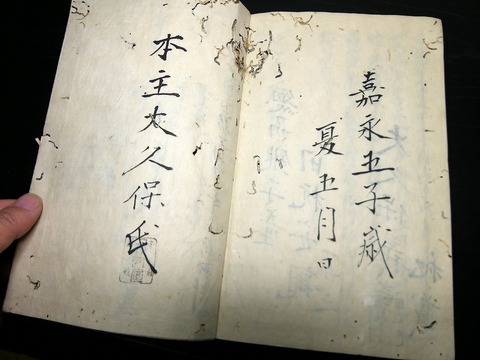 嘉永五子歳
夏五月日
本主太久保氏